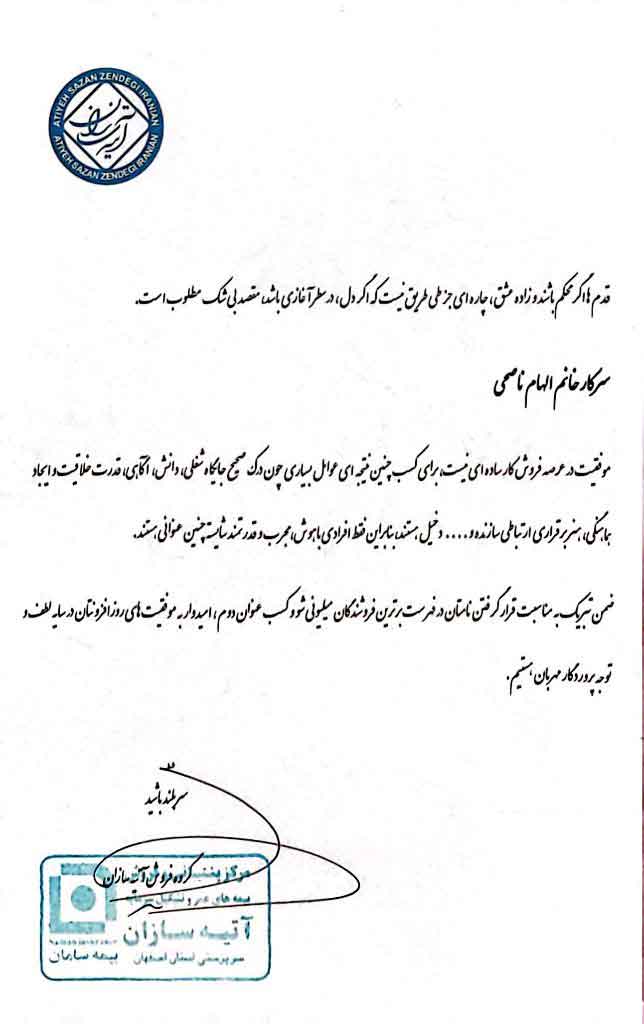 ATIYEH SAZAN ZENDEGI IRANIAN
ATIYEH SAZAN ZENDEGI IRANIAN
قدم ها اگر محکم باشند و زاده عشق، چاره ای جز طی طریق نیست که اگر دل، در سطر آغازی باشد، مقصد بی شک مطلوب است.
سرکار خانم الهام ناصحی
موفقیت در عرصه فروش کار ساده ای نیست، برای کسب چنین نتیجه ای عوامل بسیاری چون درک صحیح جایگاه شغلی، دانش، آگاهی، قدرت خلاقیت و ایجاد
هماهنگی، هنر برقراری ارتباطی سازنده و .... دخیل هستند، بنابراین فقط افرادی باهوش، مجرب و قدرتمند شایسته چنین عنوانی هستند.
ضمن تبریک به مناسبت قرار گرفتن نامتان در فهرست برترین فروشندگان میلیونی شو و کسب عنوان دوم، امیدوار به موفقیت های روز افزونتان در سایه لطف و
توجه پروردگار مهربان هستیم.
سربلند باشید
گروه فروش آتیه سازان
بیمه های عمر و تشکیل سرمایه
آتیه سازان
سرپرستی استان اصفهان
بیمه سامان